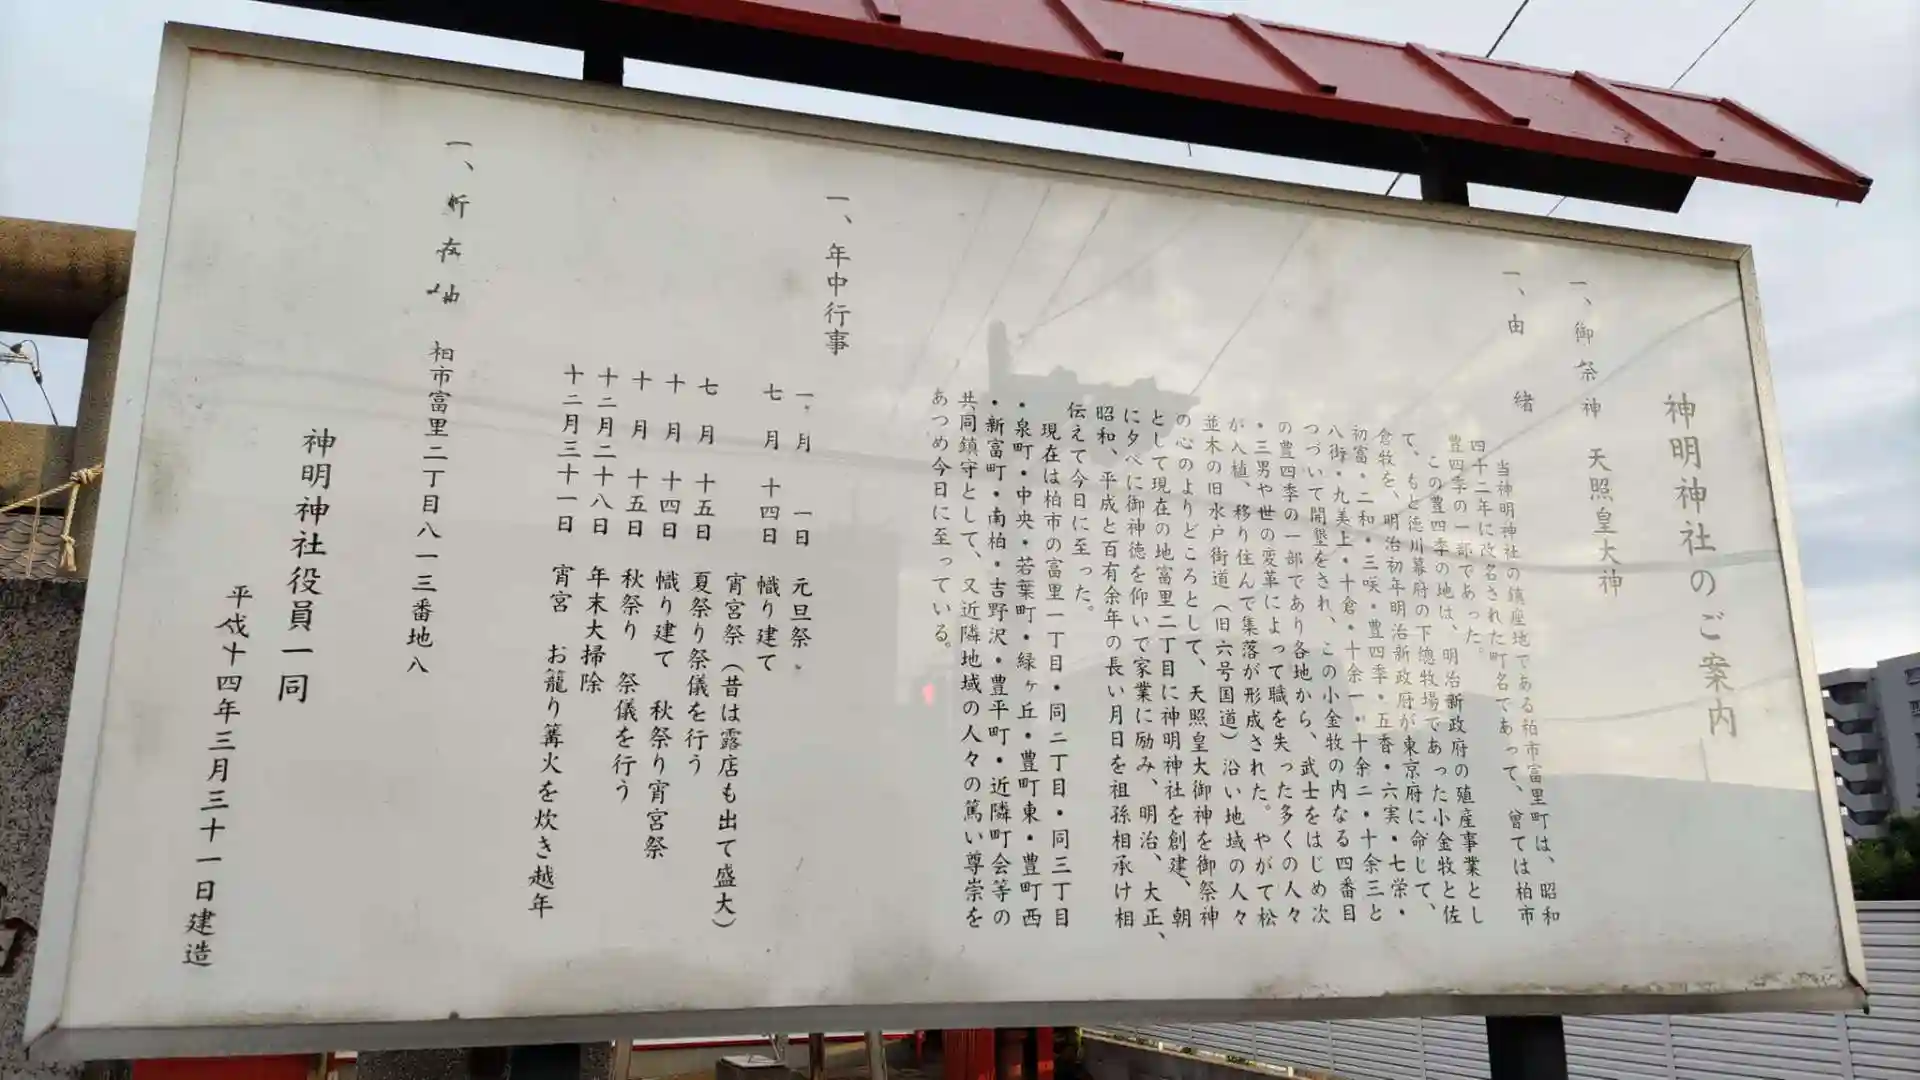 神明神社のご案内
一、御祭神 天照皇大神
一、由緒
当神明神社の鎮座地である柏市富里町は、昭和
四十二年に改名された町名であって、曾ては柏市
豊四季の一部であった。
この豊四季の地は、明治新政府の殖産事業とし
て、もと徳川幕府の下總牧場であった小金牧と佐
倉牧を、明治初年明治新政府が東京府に命じて、
初富・二和・三咲・豊四季・五香・六実・七栄・
八街・九美上・十倉・十余一・十余二・十余三と
つづいて開墾をされ、この小金牧の内なる四番目
の豊四季の一部であり各地から、武士をはじめ次
・三男や世の変革によって職を失った多くの人々
が入植、移り住んで集落が形成された。やがて松
並木の旧水戸街道（旧六号国道）沿い地域の人々
の心のよりどころとして、天照皇大御神を御祭神
として現在の地富里二丁目に神明神社を創建、朝
に夕べに御神徳を仰いで家業に励み、明治、大正、
昭和、平成と百有余年の長い月日を祖孫相承け相
伝えて今日に至った。
現在は柏市の富里一丁目・同二丁目・同三丁目
・泉町・中央・若葉町・緑ヶ丘・豊町東・豊町西
・新富町・南柏・吉野沢・豊平町・近隣町会等の
共同鎮守として、又近隣地域の人々の篤い尊崇を
あつめ今日に至っている。
一、年中行事
一月 一日 元旦祭
七月 十四日 幟り建て
宵宮祭（昔は露店も出て盛大）
七月 十五日 夏祭り祭儀を行う
十月 十四日 幟り建て 秋祭り宵宮祭
十月 十五日 秋祭り 祭儀を行う
十二月二十八日 年末大掃除
十二月三十一日 宵宮 お籠り篝火を炊き越年
一、所在地 柏市富里二丁目八一三番地八
神明神社役員一同
平成十四年三月三十一日建造